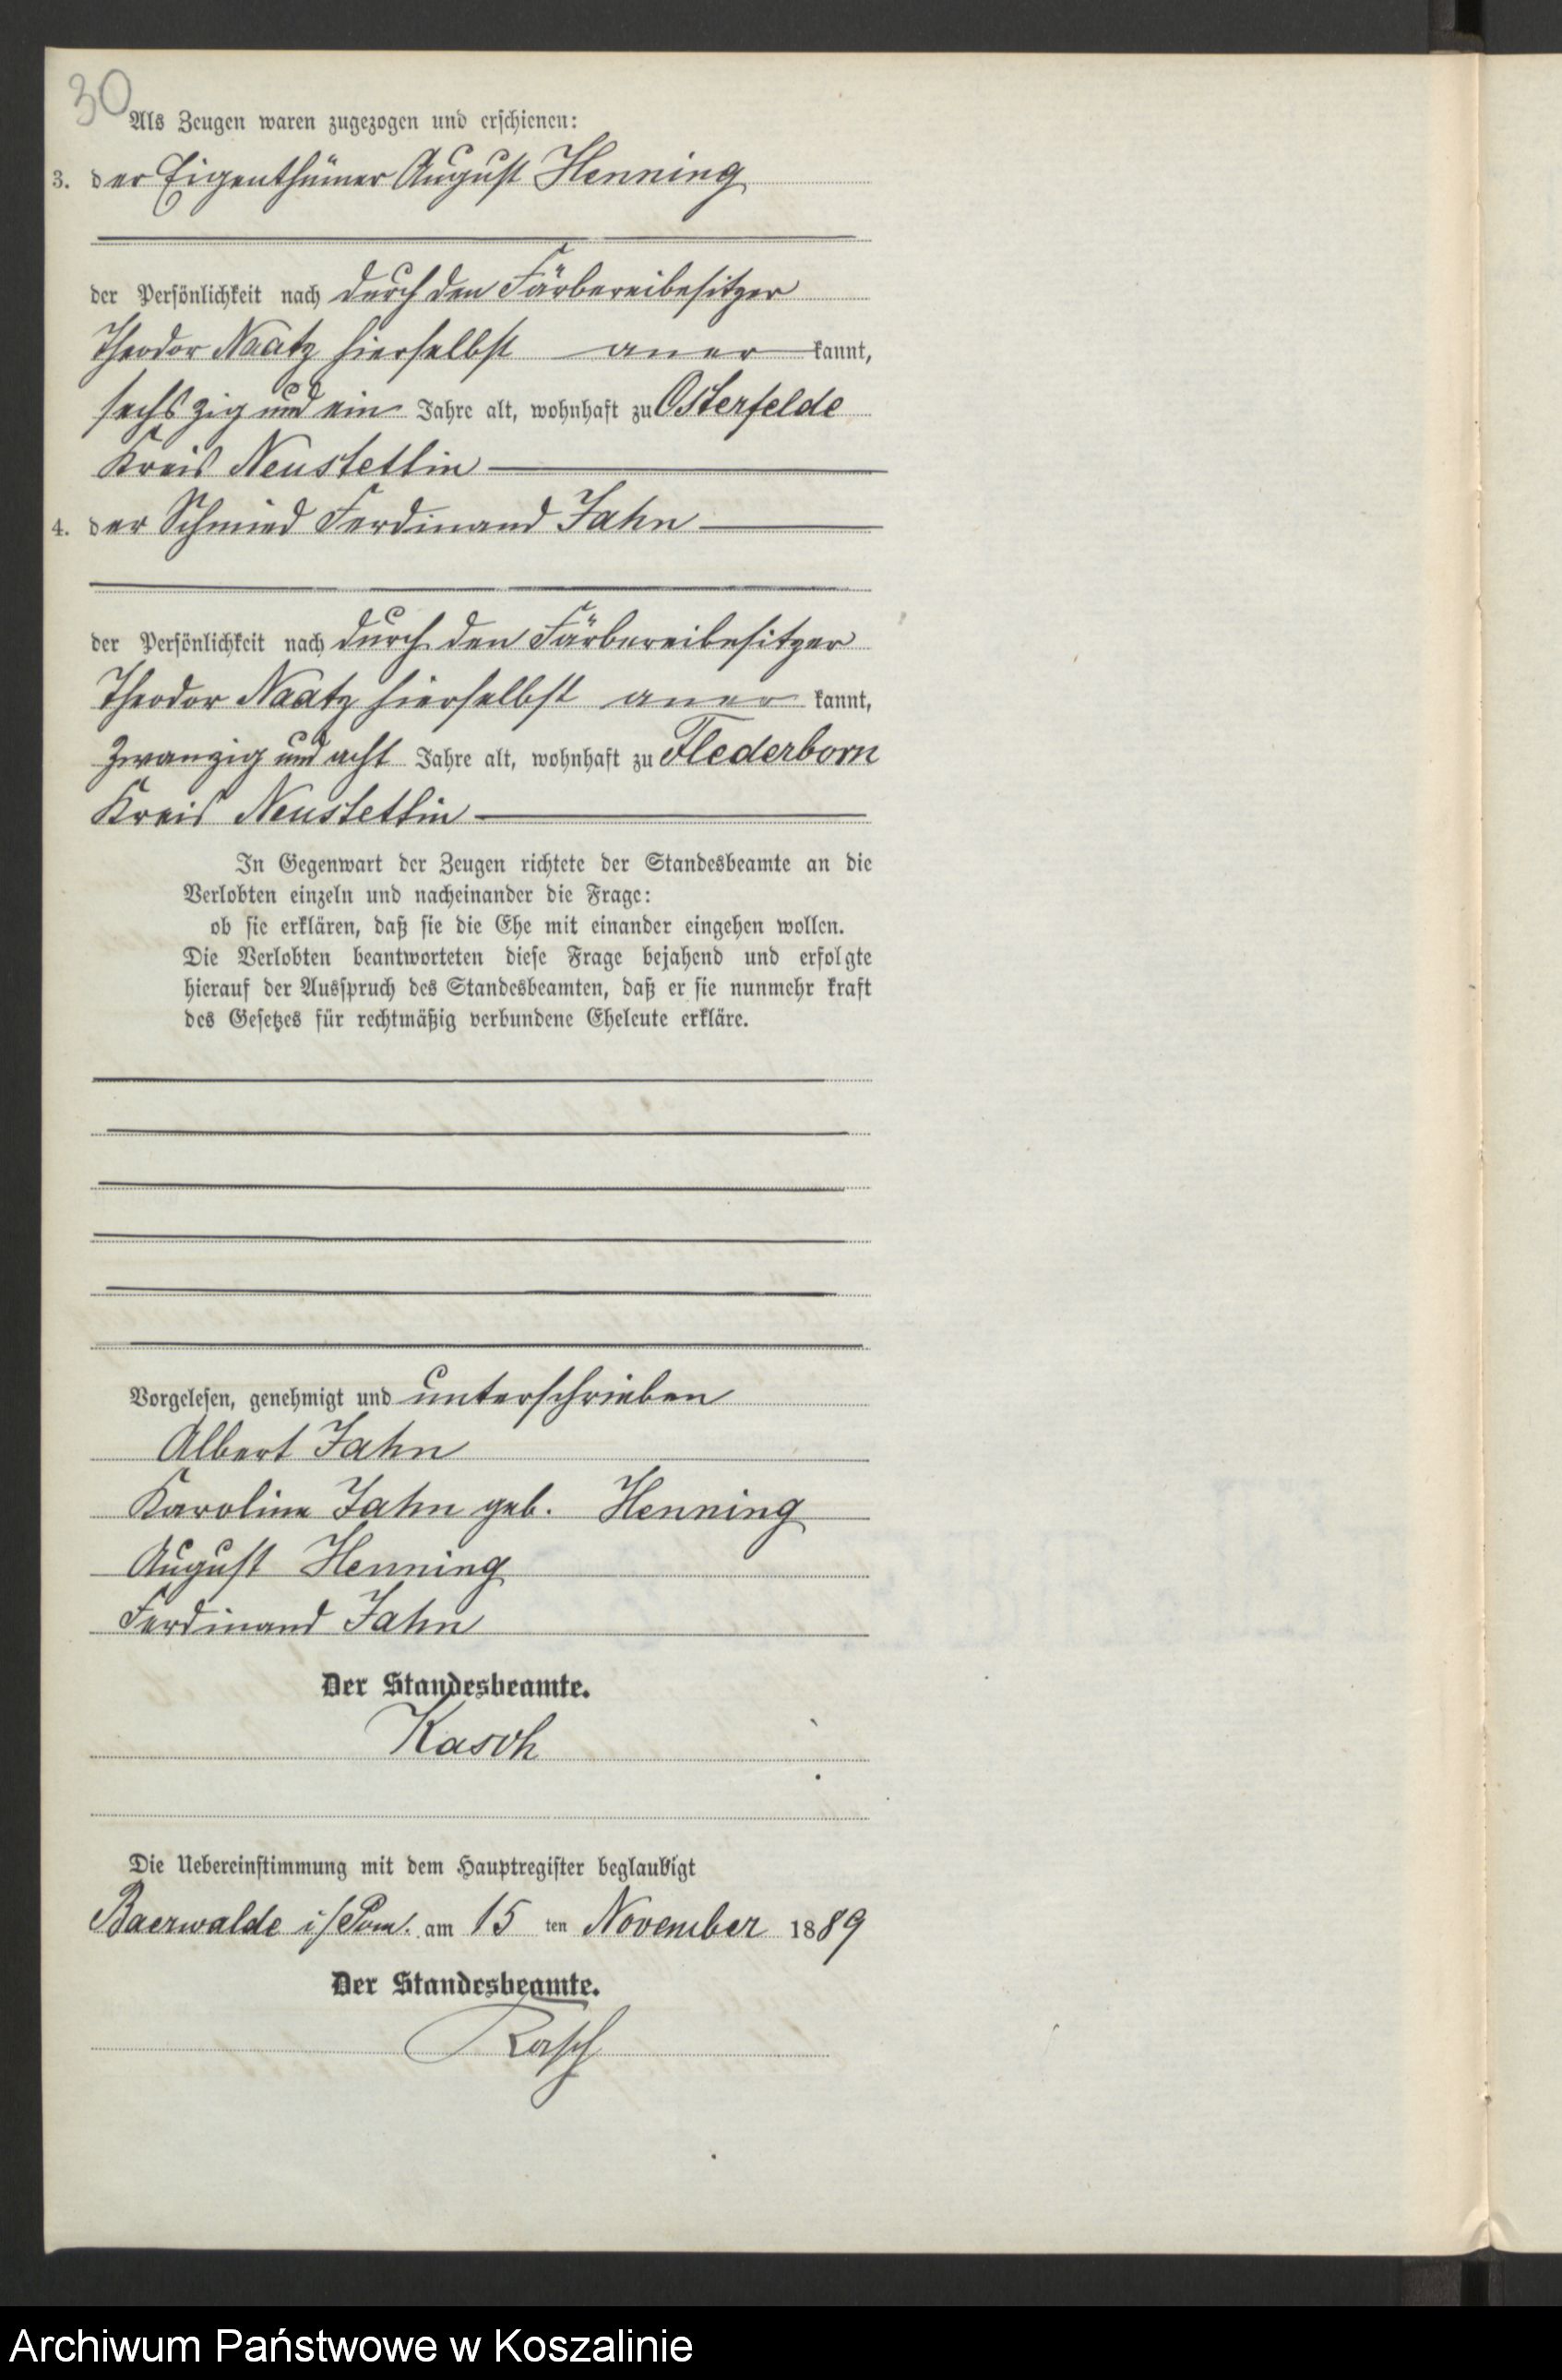 30
Als Zeugen waren zugezogen und erschienen:
3. der Eigenthümer August Henning
der Persönlichkeit nach durch den Färbereibesitzer
Theodor Naatz hierselbst aner kannt,
sechszig und ein Jahre alt, wohnhaft zu Osterfelde
Kreis Neustettin
4. der Schmied Ferdinand Jahn
der Persönlichkeit nach durch den Färbereibesitzer
Theodor Naatz hierselbst aner kannt,
zwanzig und acht Jahre alt, wohnhaft zu Flederborn
Kreis Neustettin
In Gegenwart der Zeugen richtete der Standesbeamte an die
Verlobten einzeln und nacheinander die Frage:
ob sie erklären, daß sie die Ehe mit einander eingehen wollen.
Die Verlobten beantworteten diese Frage bejahend und erfolgte
hierauf der Ausspruch des Standesbeamten, daß er sie nunmehr kraft
des Gesetzes für rechtmäßig verbundene Eheleute erkläre.
Vorgelesen, genehmigt und unterschrieben
Albert Jahn
Karoline Jahn geb. Henning
August Henning
Ferdinand Jahn
Der Standesbeamte.
Kasch
Die Uebereinstimmung mit dem Hauptregister beglaubigt
Baerwalde i/Pom. am 15 ten November 1889
Der Standesbeamte.
Archiwum Państwowe w Koszalinie